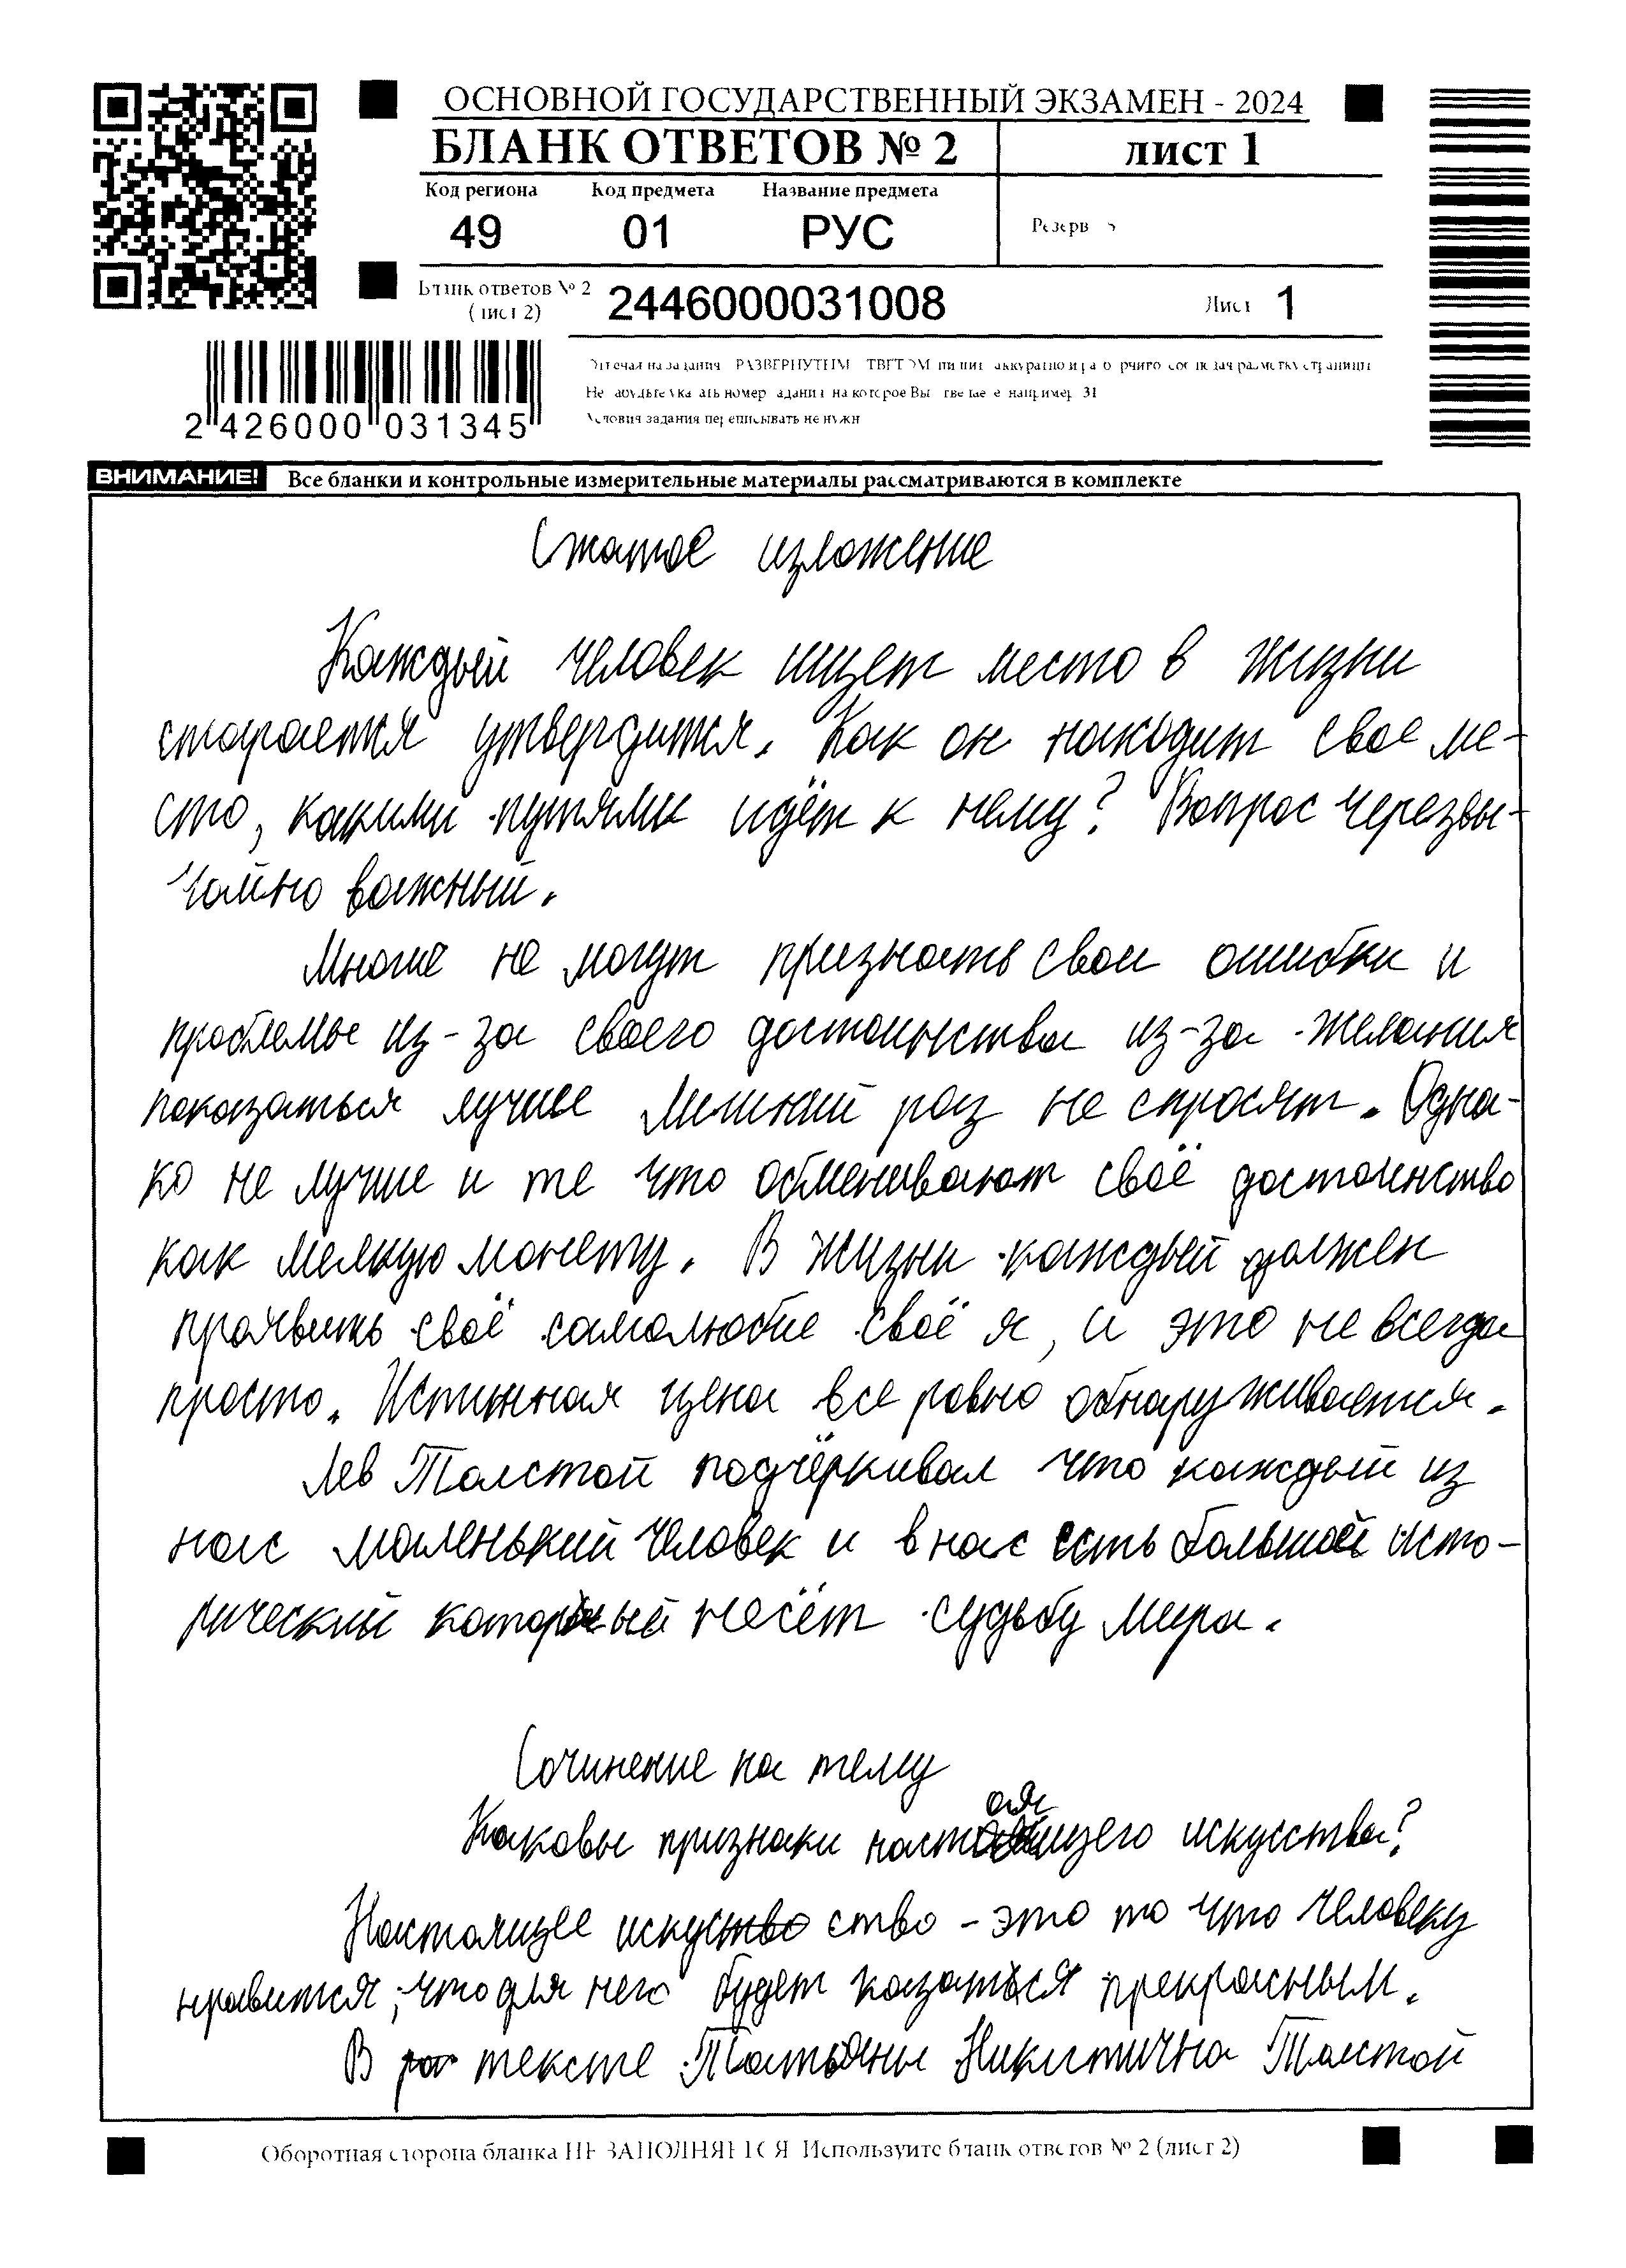 ОСНОВНОЙ ГОСУДАРСТВЕННЫЙ ЭКЗАМЕН - 2024
БЛАНК ОТВЕТОВ № 2
ЛИСТ 1
Код региона Код предмета Название предмета
49 01 РУС
Резерв
Бланк ответов № 2
(лист 2)
2446000031008
Лист 1
2 426000 031345
Условия задания переписывать не нужн
ВНИМАНИЕ! Все бланки и контрольные измерительные материалы рассматриваются в комплекте
Сжатое изложение
Каждый человек ищет место в жизни
старается утвердится. Как он находит свое ме-
сто, какими путями идёт к нему? Вопрос черезвы-
чайно важный.
Многие не могут признать свои ошибки и
проблемы из-за своего достоинства из-за желания
показаться лучше лишний раз не спросят. Одна-
ко не лучше и те что обменивают своё достоинство
как мелкую монету. В жизни каждый должен
проявить своё самолюбие своё я, и это не всегда
просто. Истинная цена все равно обнаруживается.
Лев Толстой подчёркивал что каждый из
нас маленький человек и в нас есть большой исто-
рический который несёт судьбу мира.
Сочинение на тему
Каковы признаки настоящего искусства?
Настоящее искуство ство - это то что человеку
нравится, что для него будет казаться прекрасным.
В тексте Татьяны Никитична Толстой
Оборотная сторона бланка НЕ ЗАПОЛНЯЕТСЯ. Используйте бланк ответов № 2 (лист 2)